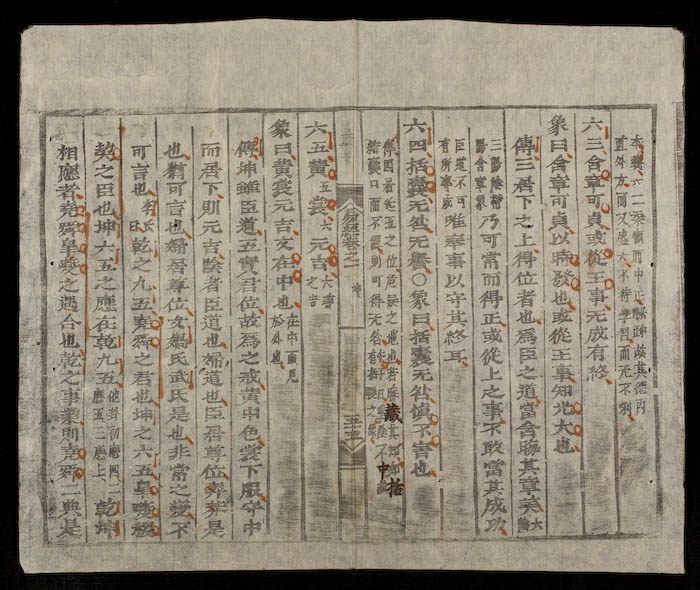 本義六二柔順而中正
直外方而又盛大不待學習而无不利
六三含章可貞或從王事无成有終
象曰含章可貞以時發也或從王事知光大也
傳三居下之上得位者也爲臣之道當含晦其章美
乃可常而得正或從上之事不敢當其成功
臣道不可
有所專成
唯奉事以守其終耳
六四括囊无咎无譽〇象曰括囊无咎愼不害也
括囊口而不露則可得无咎
易經卷之一
坤
五十五
六五黃裳元吉
象曰黃裳元吉文在中也
在中而見
於外也
傳坤雖臣道五實君位故爲之戒黃中色裳下服守中
而居下則元吉陰者臣道也婦道也臣居尊位羿莽是
也猶可言也婦居尊位女媧氏武氏是也非常之變不
可言也
乾之九五堯舜之君也坤之六五皐夔稷
契之臣也坤六五之應在乾九五
他卦初應四
應五三應上
乾坤
相應者堯舜皐夔之遇合也乾之事業則堯舜二典是